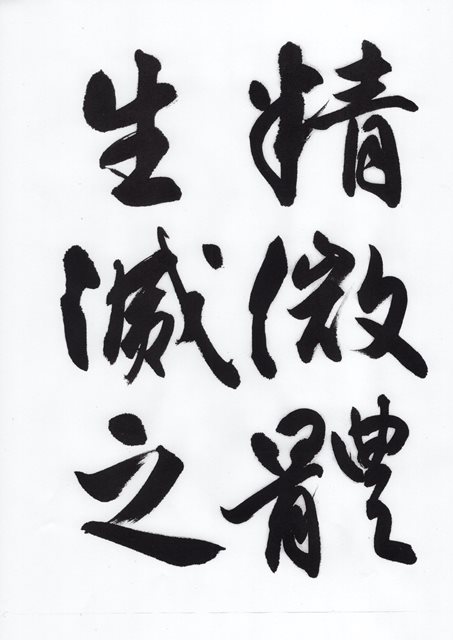 精微體
生滅之